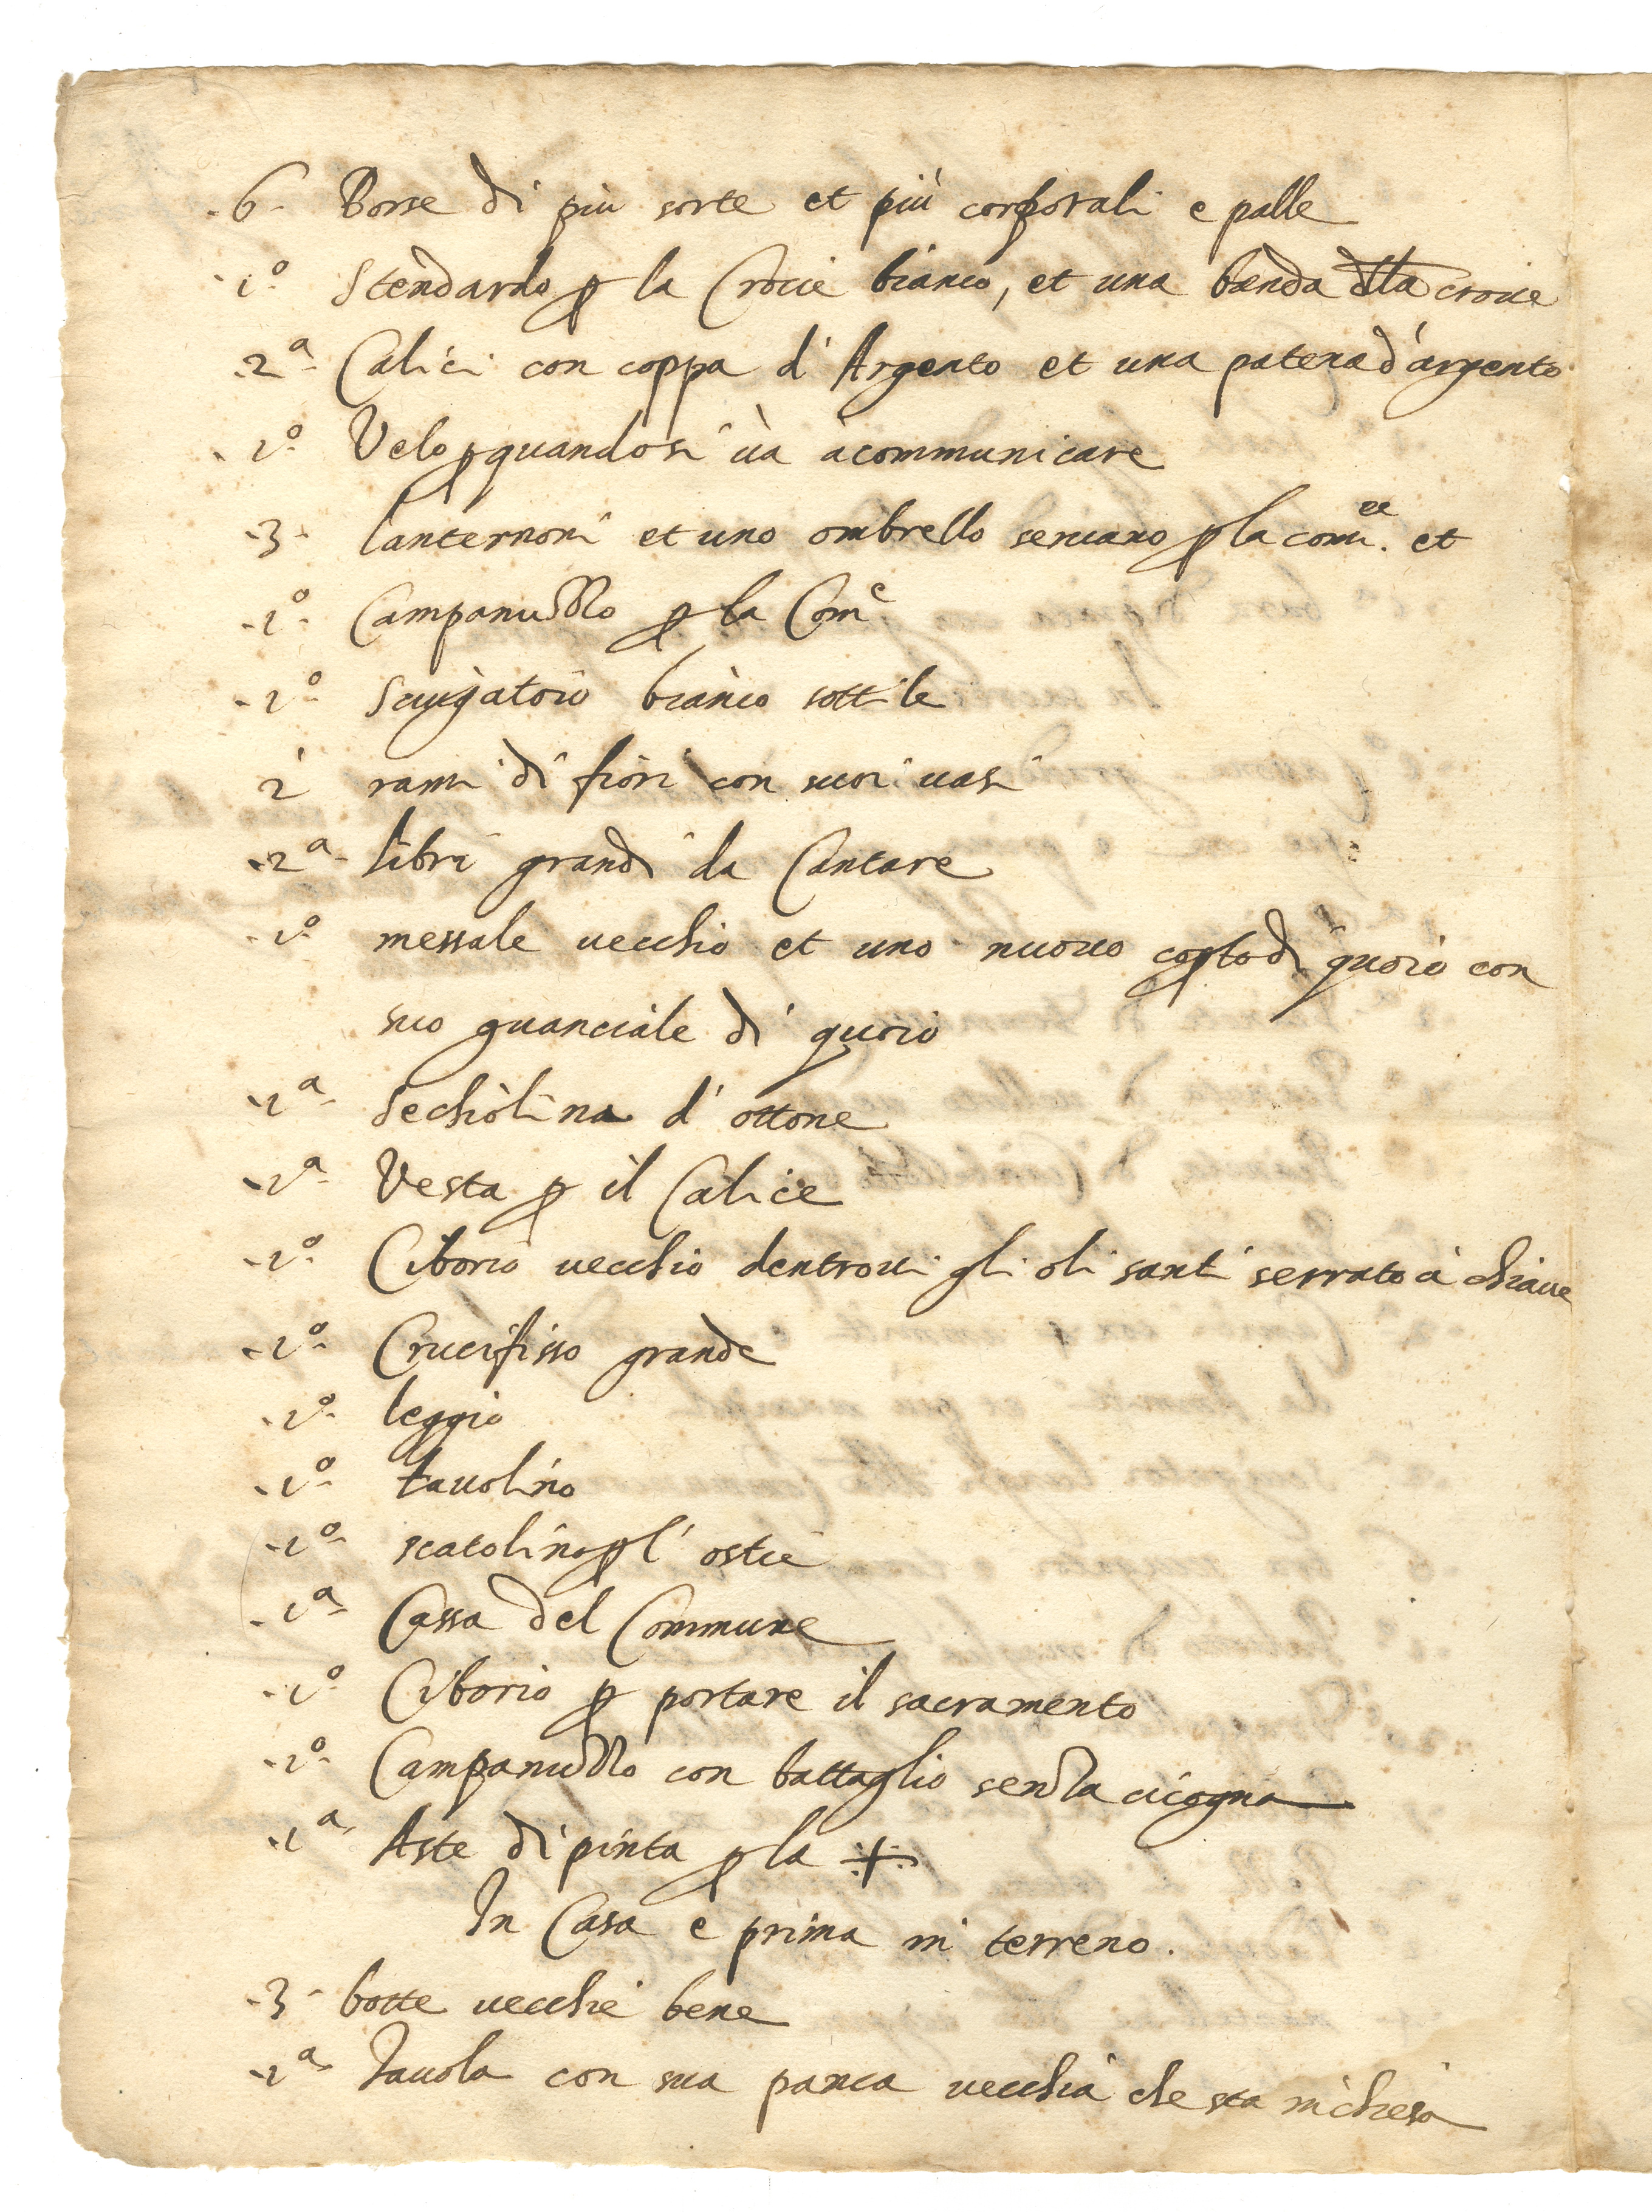 -6- Borse di più sorte et più corporali e palle
-1º Stendardo ꝑ la Crocie bianco, et una banda dlla crocie
-2ª Calici con coppa d'Argento et una patena d'argento
-1º Velo ꝑ quando si uà à communicare
-3- lanternoni et uno ombrello seruano ꝑ la comne. et
-1º Campanuzzo ꝑ la Comne
-1º Sciugatoio bianco sottile
2 rami di fiori con suoi uasi
-2ª libri grandi da Cantare
-1º messale uecchio et uno nuouo copto di quoio con
suo guanciale di quoio
-1ª Sechiolina d'ottone
-1ª Vesta ꝑ il Calice
-1º Ciborio uecchio dentroui gli oli santi serrato à chiaue
-1º Crucifisso grande
-1º leggio
-1º tauolino
-1º scatolino ꝑ l'ostie
-1ª Cassa del Commune
-1º Ciborio ꝑ portare il sacramento
-1º Campanuzzo con battaglio senza cicogna
-1ª Aste dipinta ꝑ la +
In Casa e prima in terreno.
-3- botte uecchie bene
-1ª Tauola con sua panca uecchia che sta in chiesa